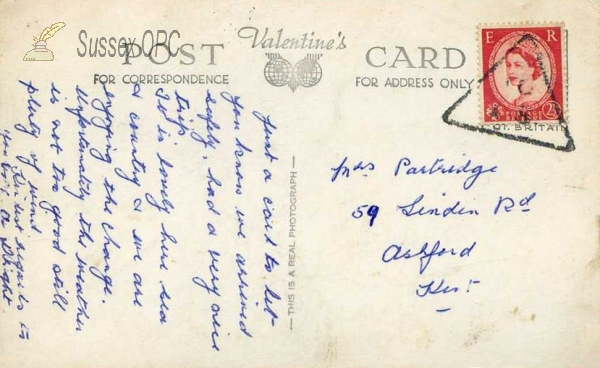 Sussex OPC
POST Valentine's CARD
FOR CORRESPONDENCE
FOR ADDRESS ONLY
E R
2½
GT. BRITAIN
THIS IS A REAL PHOTOGRAPH
Just a card to let
you know we arrived
safely, had a very nice
trip.
It is lovely here sea
& country & we are
enjoying the change.
Unfortunately the weather
is not too good still
plenty of wind
Kindest regards to
you
Mrs Partridge
59 Linden Rd
Ashford
Kent